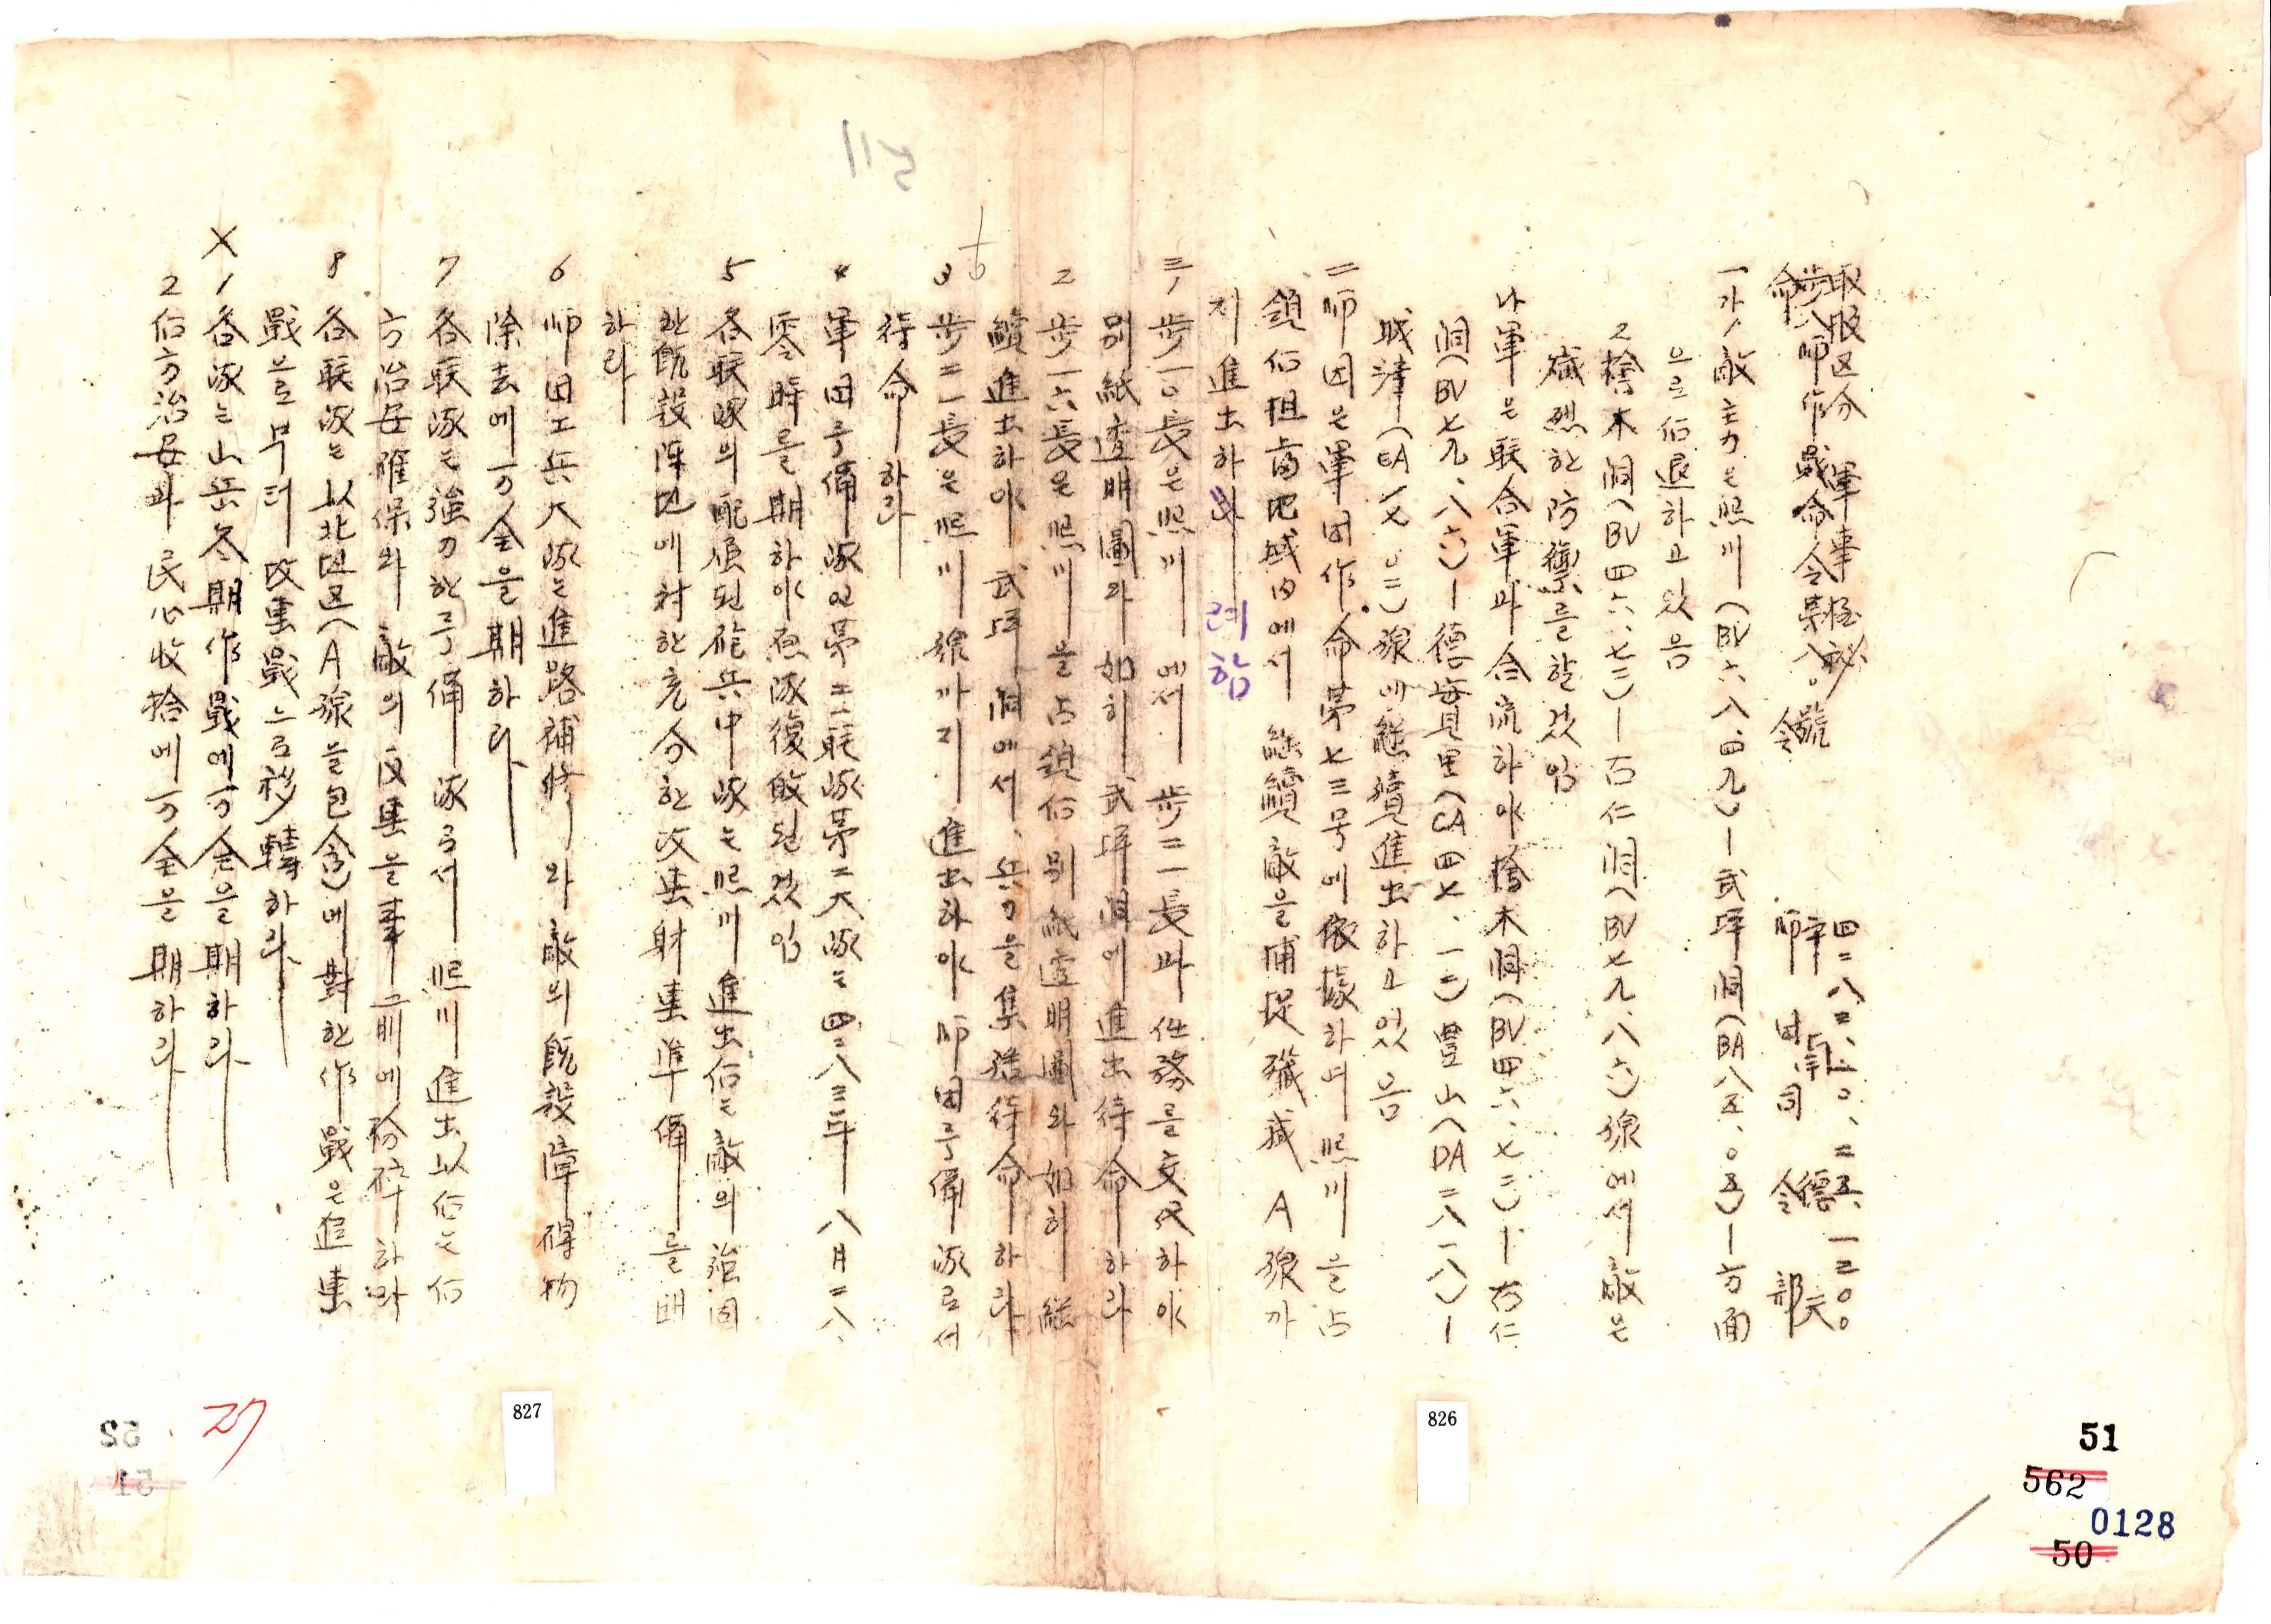 取扱区分 軍事極秘
步八師作戰命令第八〇號
命 令
四二八三、一〇、二五、一二〇〇
師団司令部
一 가 / 敵主力은 熙川(BV六八.四九)ー武坪洞(BA八五.〇五)ー方面
으로 后退하고 있음
2 檜木洞(BV四六.七二)ー古仁洞(BV七九.八六)線에서 敵은
熾烈한 防禦를 할 것임
나 軍은 联合軍과 合流하야 檜木洞(BV四六.七二)ー古仁
洞(BV七九.八六)ー德實里(CA四七.一二)豊山(DA二八一八)ー
城津(EA一七.〇二)線에 継續進出하고 있음
二 師団은 軍団作命第七三号에 依據하며 熙川을 占
領后 担當地域内에서 継續 敵을 捕捉殲滅 A線까
지 進出하려 함
三 / 步一〇長은 熙川에서 步二一長과 任務를 交代하야
別紙透明圖와 如히 武坪洞에 進出待命하라
2 步一六長은 熙川을 占領后 別紙透明圖와 如히 継
續進出하야 武坪洞에서 兵力을 集結待命하라
3 步二一長은 熙川線까지 進出하야 師団予備隊로서
待命하라
4 軍団予備隊인 第二联隊第二大隊는 四二八三年 八月二八、
零時를 期하야 原隊復敀된 것임
5 各联隊의 配属된 砲兵中隊는 熙川 進出后는 敵의 強固
한 既設陣地에 対한 充分한 攻兵射擊準備를 배
하라
6 師団工兵大隊는 進路補修와 敵의 既設障碍物
除去에 万全을 期하라
7 各联隊는 強力한 予備隊로서 熙川 進出 以后는 后
方治安確保와 敵의 反擊을 事前에 粉碎하라
8 各联隊는 以北地区(A線을 包含)에 對한 作戰은 追擊
戰으로부터 攻擊戰으로 移轉하라
X / 各隊는 山岳冬期作戰에 万全을 期하라
2 后方治安과 民心收拾에 万全을 期하라
827
826
27
51
562
0128
50